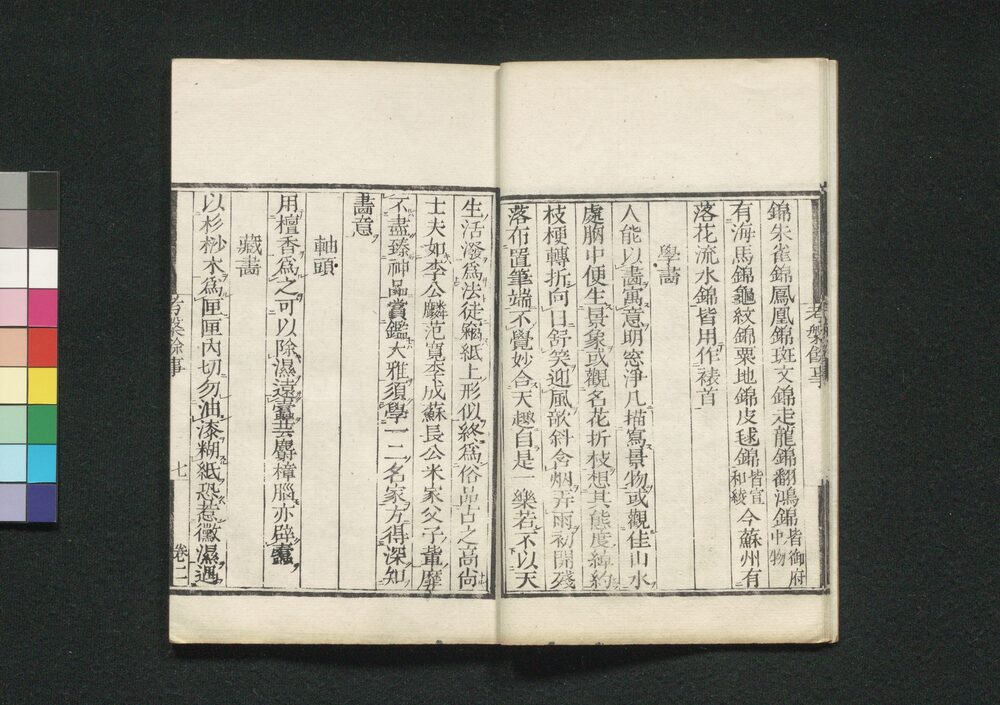 錦朱雀錦鳳凰錦斑文錦走龍錦翻鴻錦皆御府中物
有海馬錦龜紋錦粟地錦皮毬錦皆宣和綾今蘇州有
落花流水錦皆用作裱首
學畫
人能以畫寓意明窓淨几描寫景物或觀佳山水
處胸中便生景象或觀名花折枝想其態度綽約
枝梗轉折向日舒笑迎風欹斜含烟弄雨初開殘
落布置筆端不覺妙合天趣自是一樂若不以天
生活潑爲法徒竊紙上形似終爲俗品古之高尚
士夫如李公麟范寛李成蘇長公米家父子輩靡
不盡臻神品賞鑑大雅須學一二名家方得深知
畫意
軸頭
用檀香爲之可以除濕遠蠹芸麝樟腦亦辟蠹
藏畫
以杉桫木爲匣匣內切勿油漆糊紙恐惹黴濕遇
考槃餘事
七
卷二